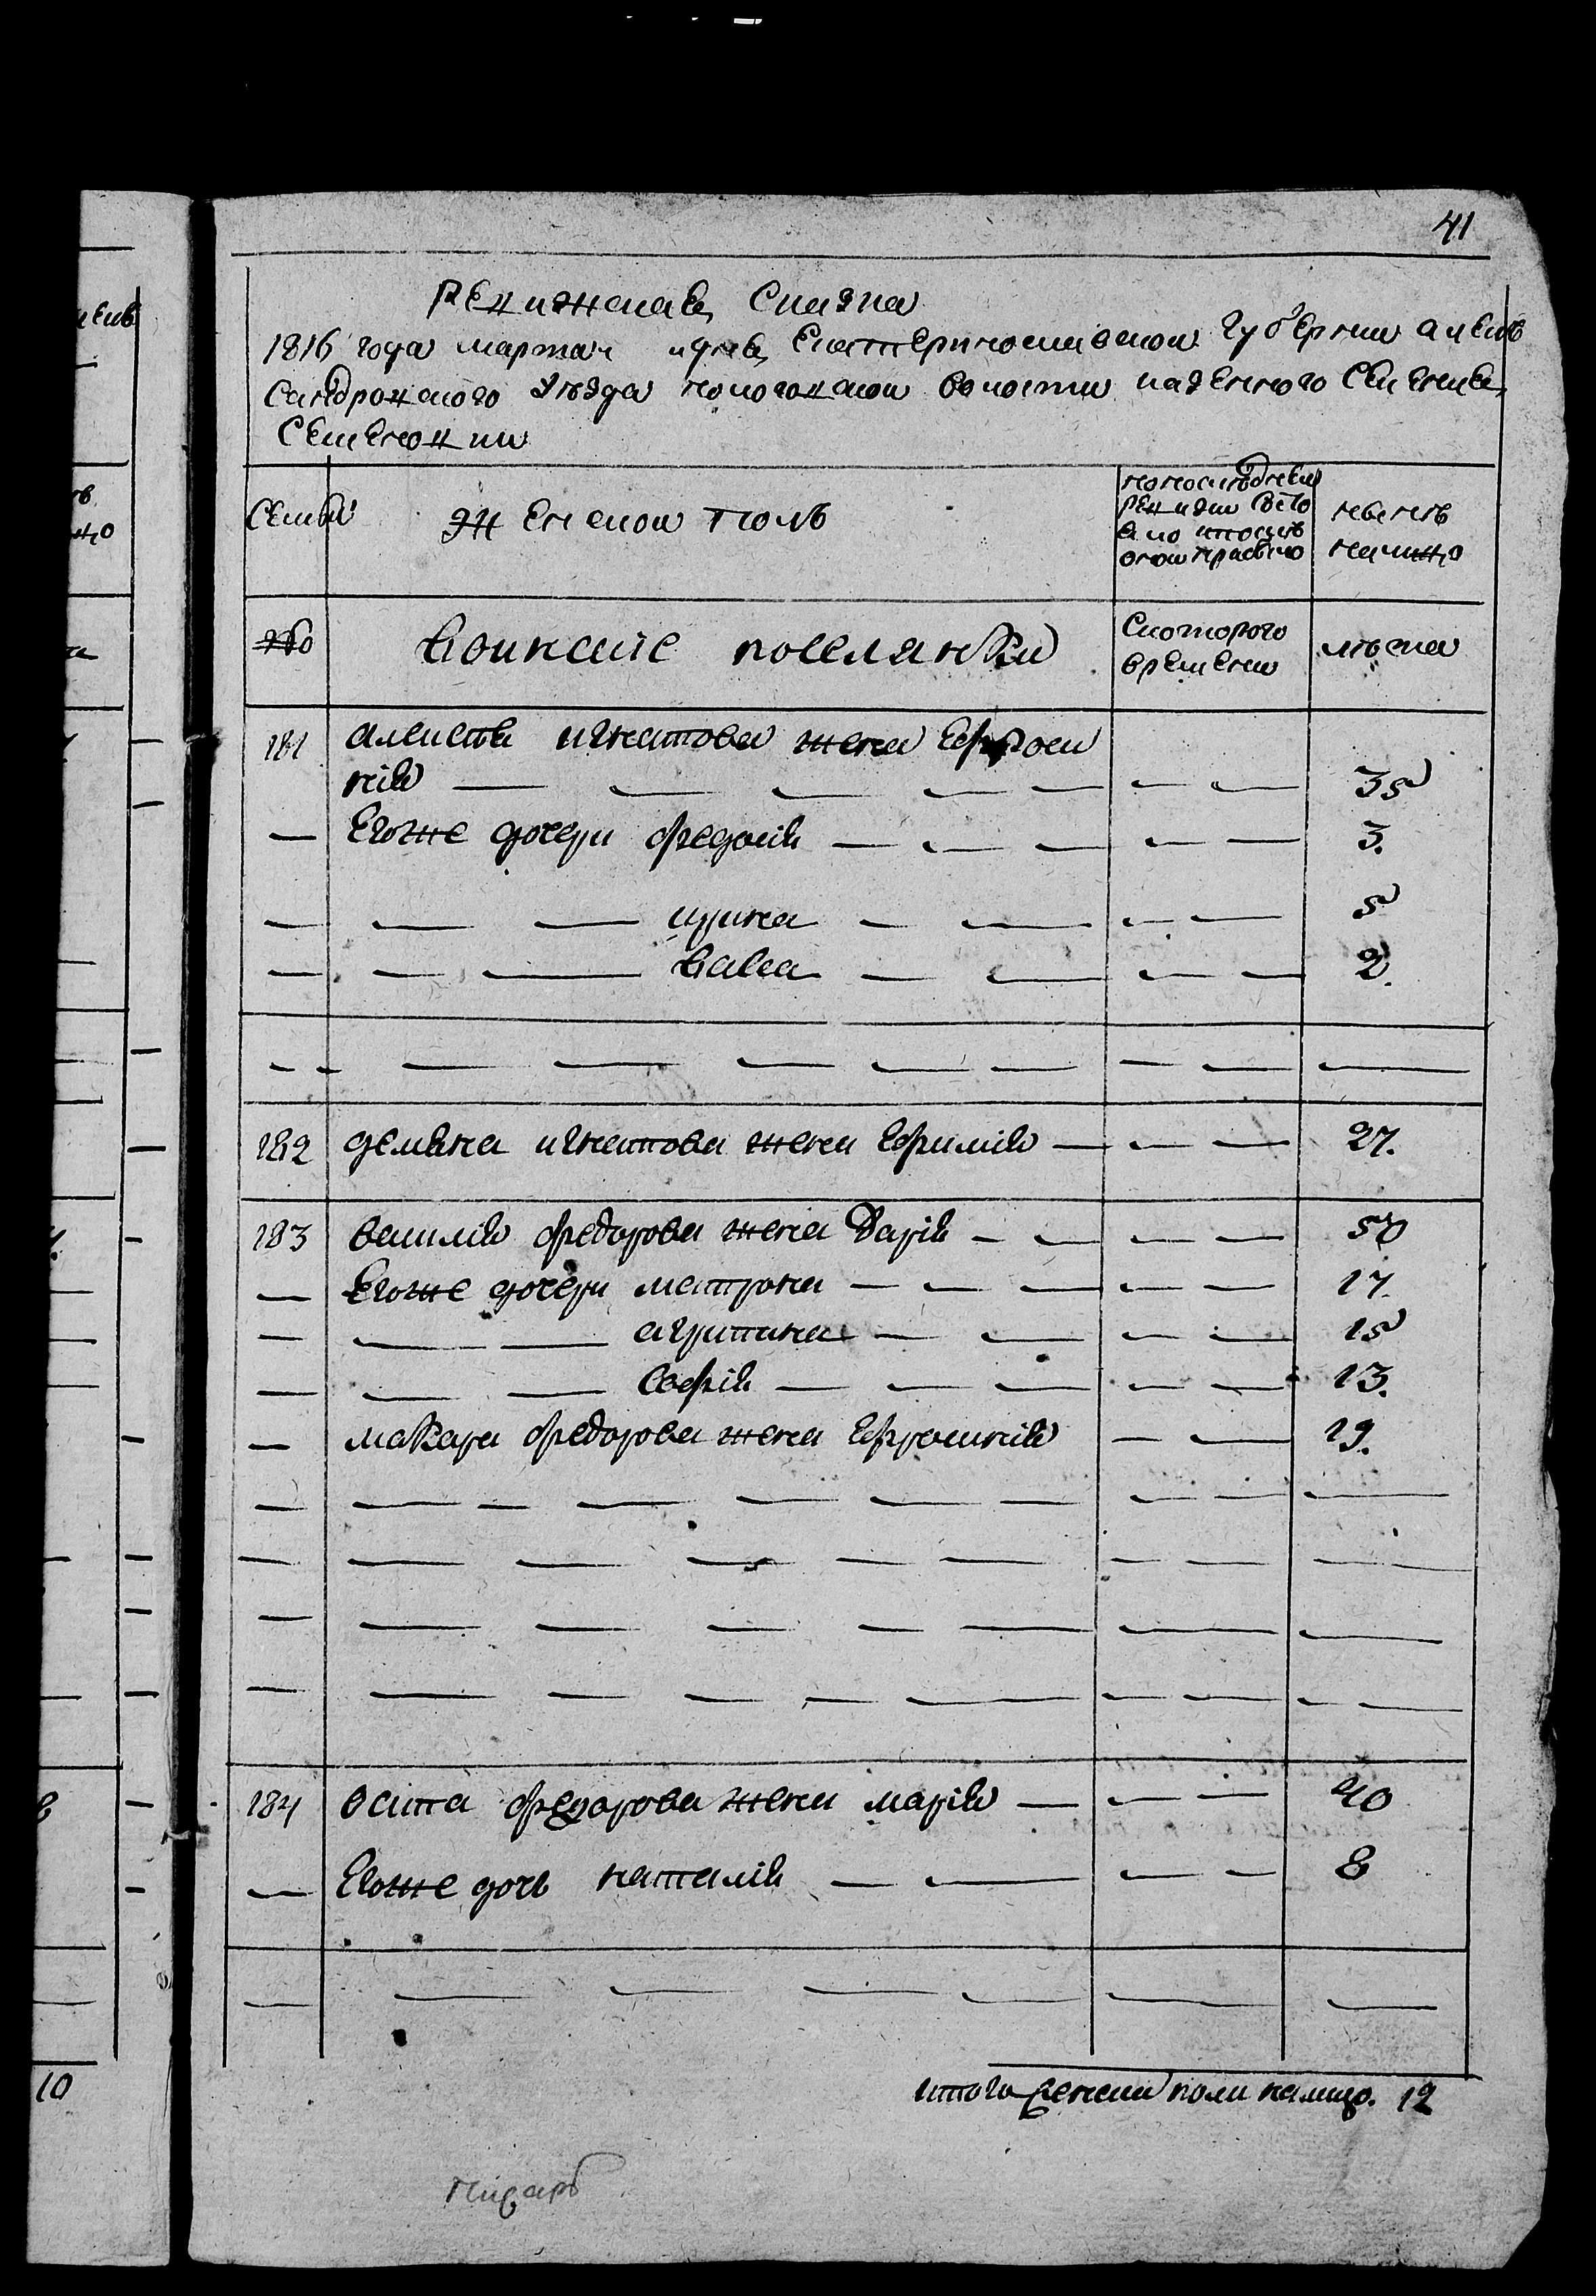 41
Ревижская Сказка
1816 года марта дня Екатеринославской губернии Алек
сандровского уѣзда волости казенного Селения
Семеновки
Семьи
женской полъ
попоследней
ревизии состо
яло и после
оной прибыло
нынѣ
налицо
№о
Воинские поселянки
Скоторого
времени
лѣта
181 Алексея Игнатова жена Ефроси
нія 35
— Егоже дочери Федосия 3.
Ирина 5
Васса 2.
182 Демяна Игнатова жена Ефимія 27.
183 Василія Федорова жена Дарія 50
— Егоже дочери Матрона 17.
Агрипина 15
Софія 13.
— Макара Федорова жена Ефросинія 19.
184 Осипа Федорова жена Марія 40
— Егоже дочь Наталія 8
итого женска пола налицо. 12
Писарь
10